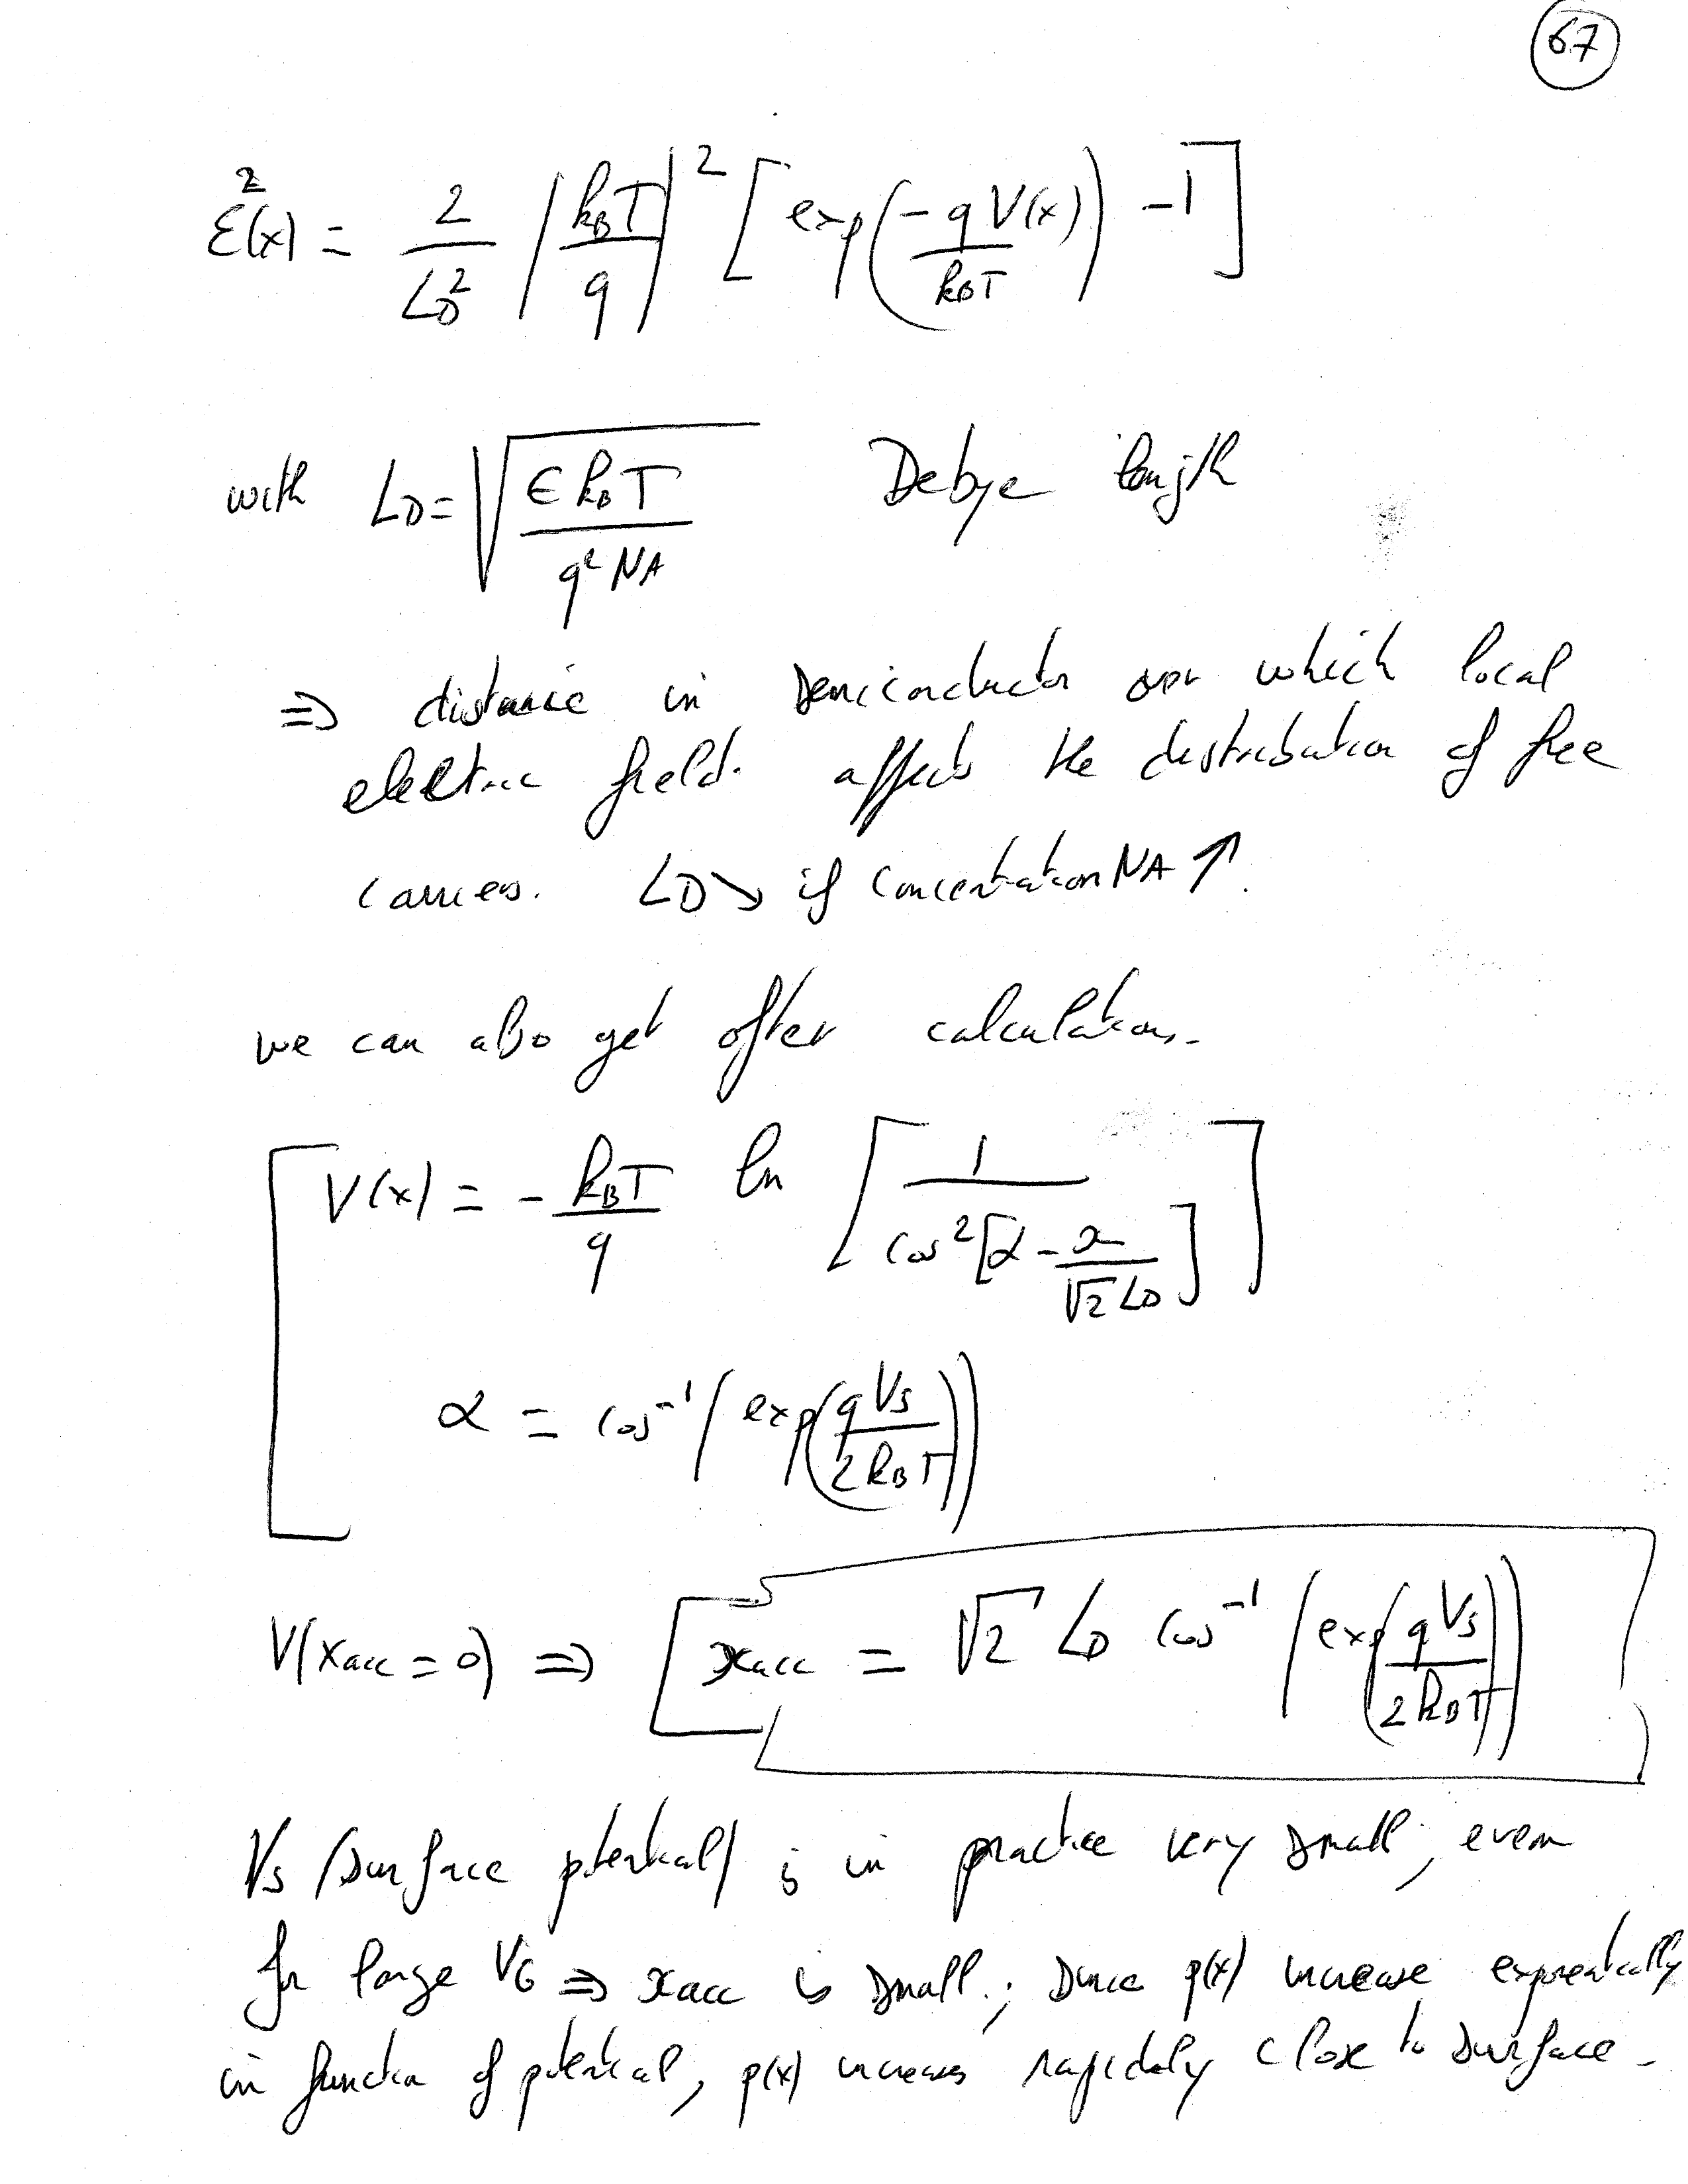 67
ℰ²(x) = 2/L_D² (k_BT/q)² [exp(-qV(x)/k_BT) - 1]
with L_D = √(ϵ k_B T / q² NA) Debye length
⇒ distance in semiconductor over which local
electric field. affects the distribution of free
carriers. L_D ↘ if concentration NA ↑.
we can also get after calculations.
V(x) = - k_BT/q ln [1 / cos²[α - x/(√2 L_D)]]
α = cos⁻¹(exp(qVs/2k_BT))
V(xacc = 0) ⇒ [xacc = √2 L_D cos⁻¹(exp(qVs/2k_BT))
Vs (surface potential) is in practice very small, even
for large VG ⇒ xacc is small.; since p(x) increase exponentially
in function of potential, p(x) increases rapidely close to surface.